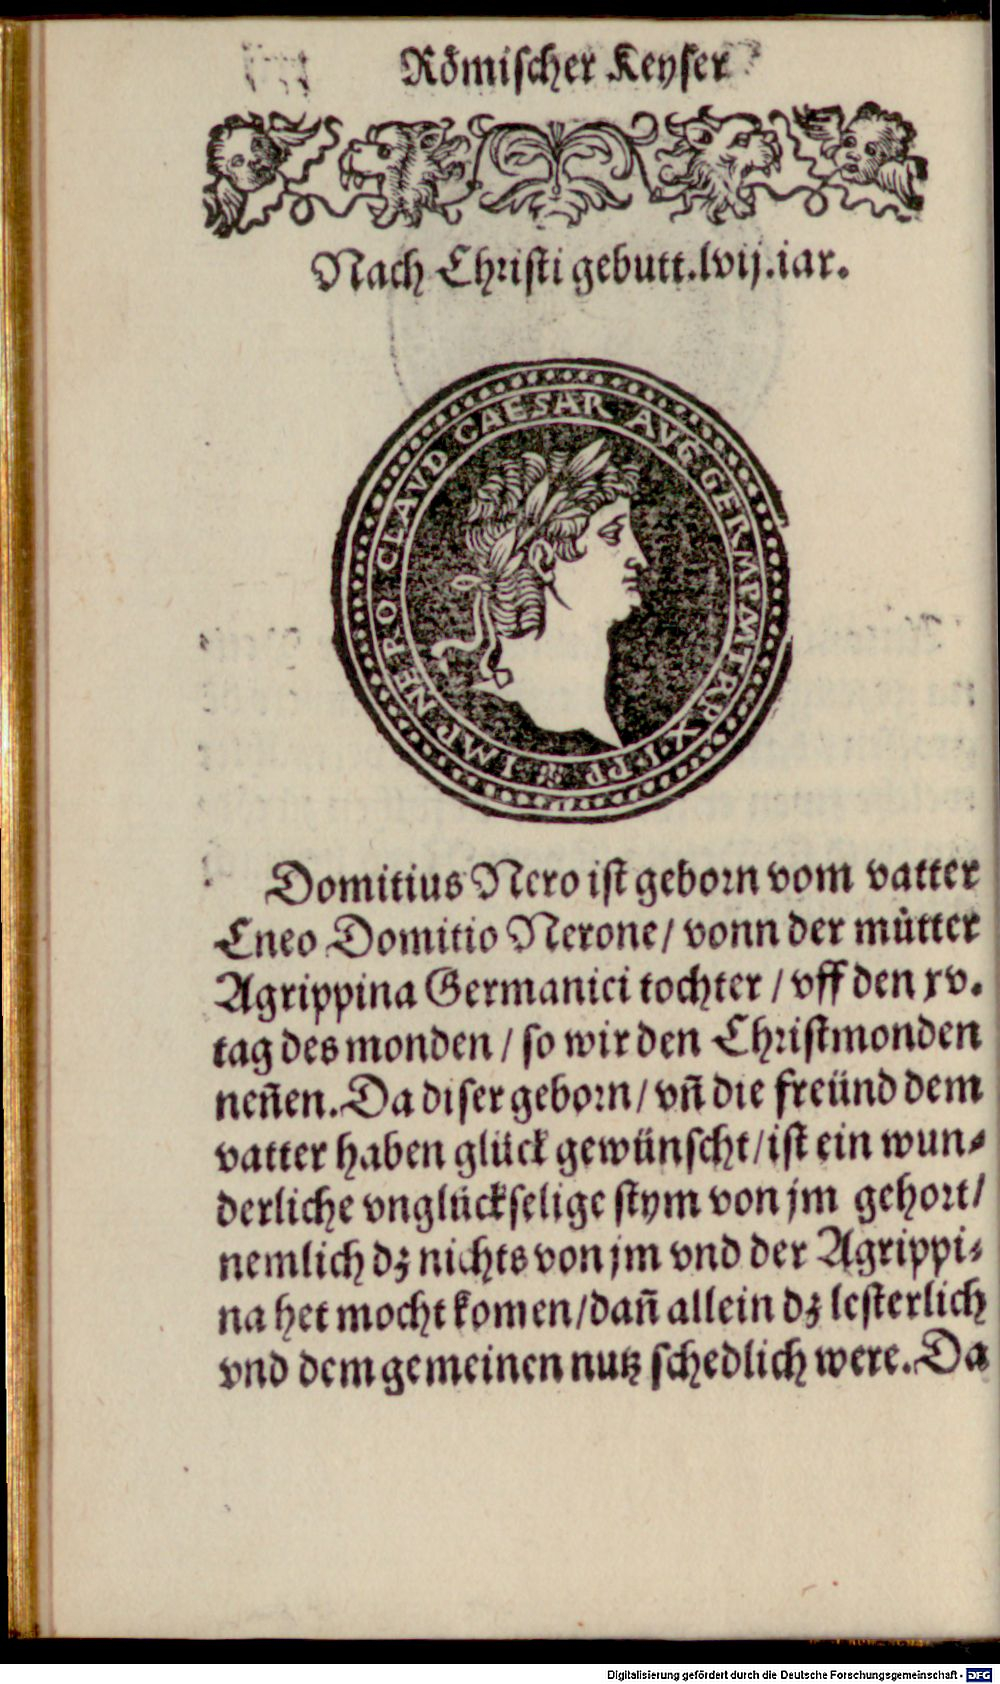 Römischer Keyser
Nach Christi gebutt.lvij.iar.
IMP NERO CLAVD CAESAR AVG GERM PM TRP XI PP
Domitius Nero ist geborn vom vatter
Cneo Domitio Nerone/ vonn der můtter
Agrippina Germanici tochter / vff den xv.
tag des monden / so wir den Christmonden
neñen. Da diser geborn/ vñ die freünd dem
vatter haben glück gewünscht/ist ein wun⸗
derliche vnglückselige stym von jm gehort/
nemlich dz nichts von jm vnd der Agrippi⸗
na het mocht komen/dañ allein dz lesterlich
vnd dem gemeinen nutz schedlich were. Da
Digitalisierung gefördert durch die Deutsche Forschungsgemeinschaft - DFG